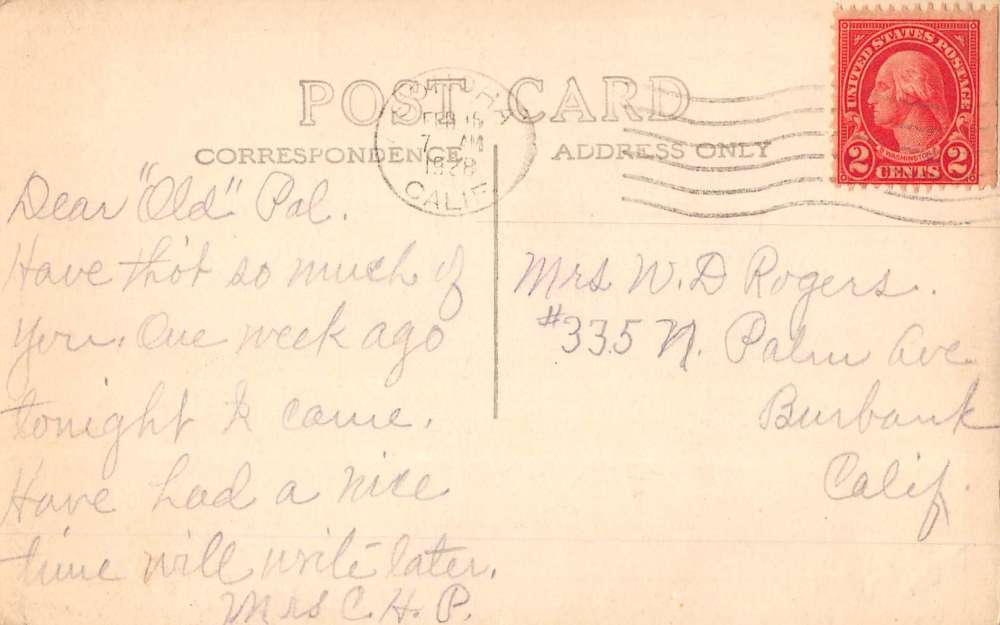 POST CARD
CORRESPONDENCE
ADDRESS ONLY
FEB 15
7 AM
1928
CALIF.
UNITED STATES POSTAGE
WASHINGTON
2 CENTS 2
Dear "Old" Pal.
Have tho't so much of
you. One week ago
tonight I came.
Have had a nice
time will write later.
Mrs C. H. P.
Mrs W. D Rogers.
#335 N. Palm Ave
Burbank
Calif.